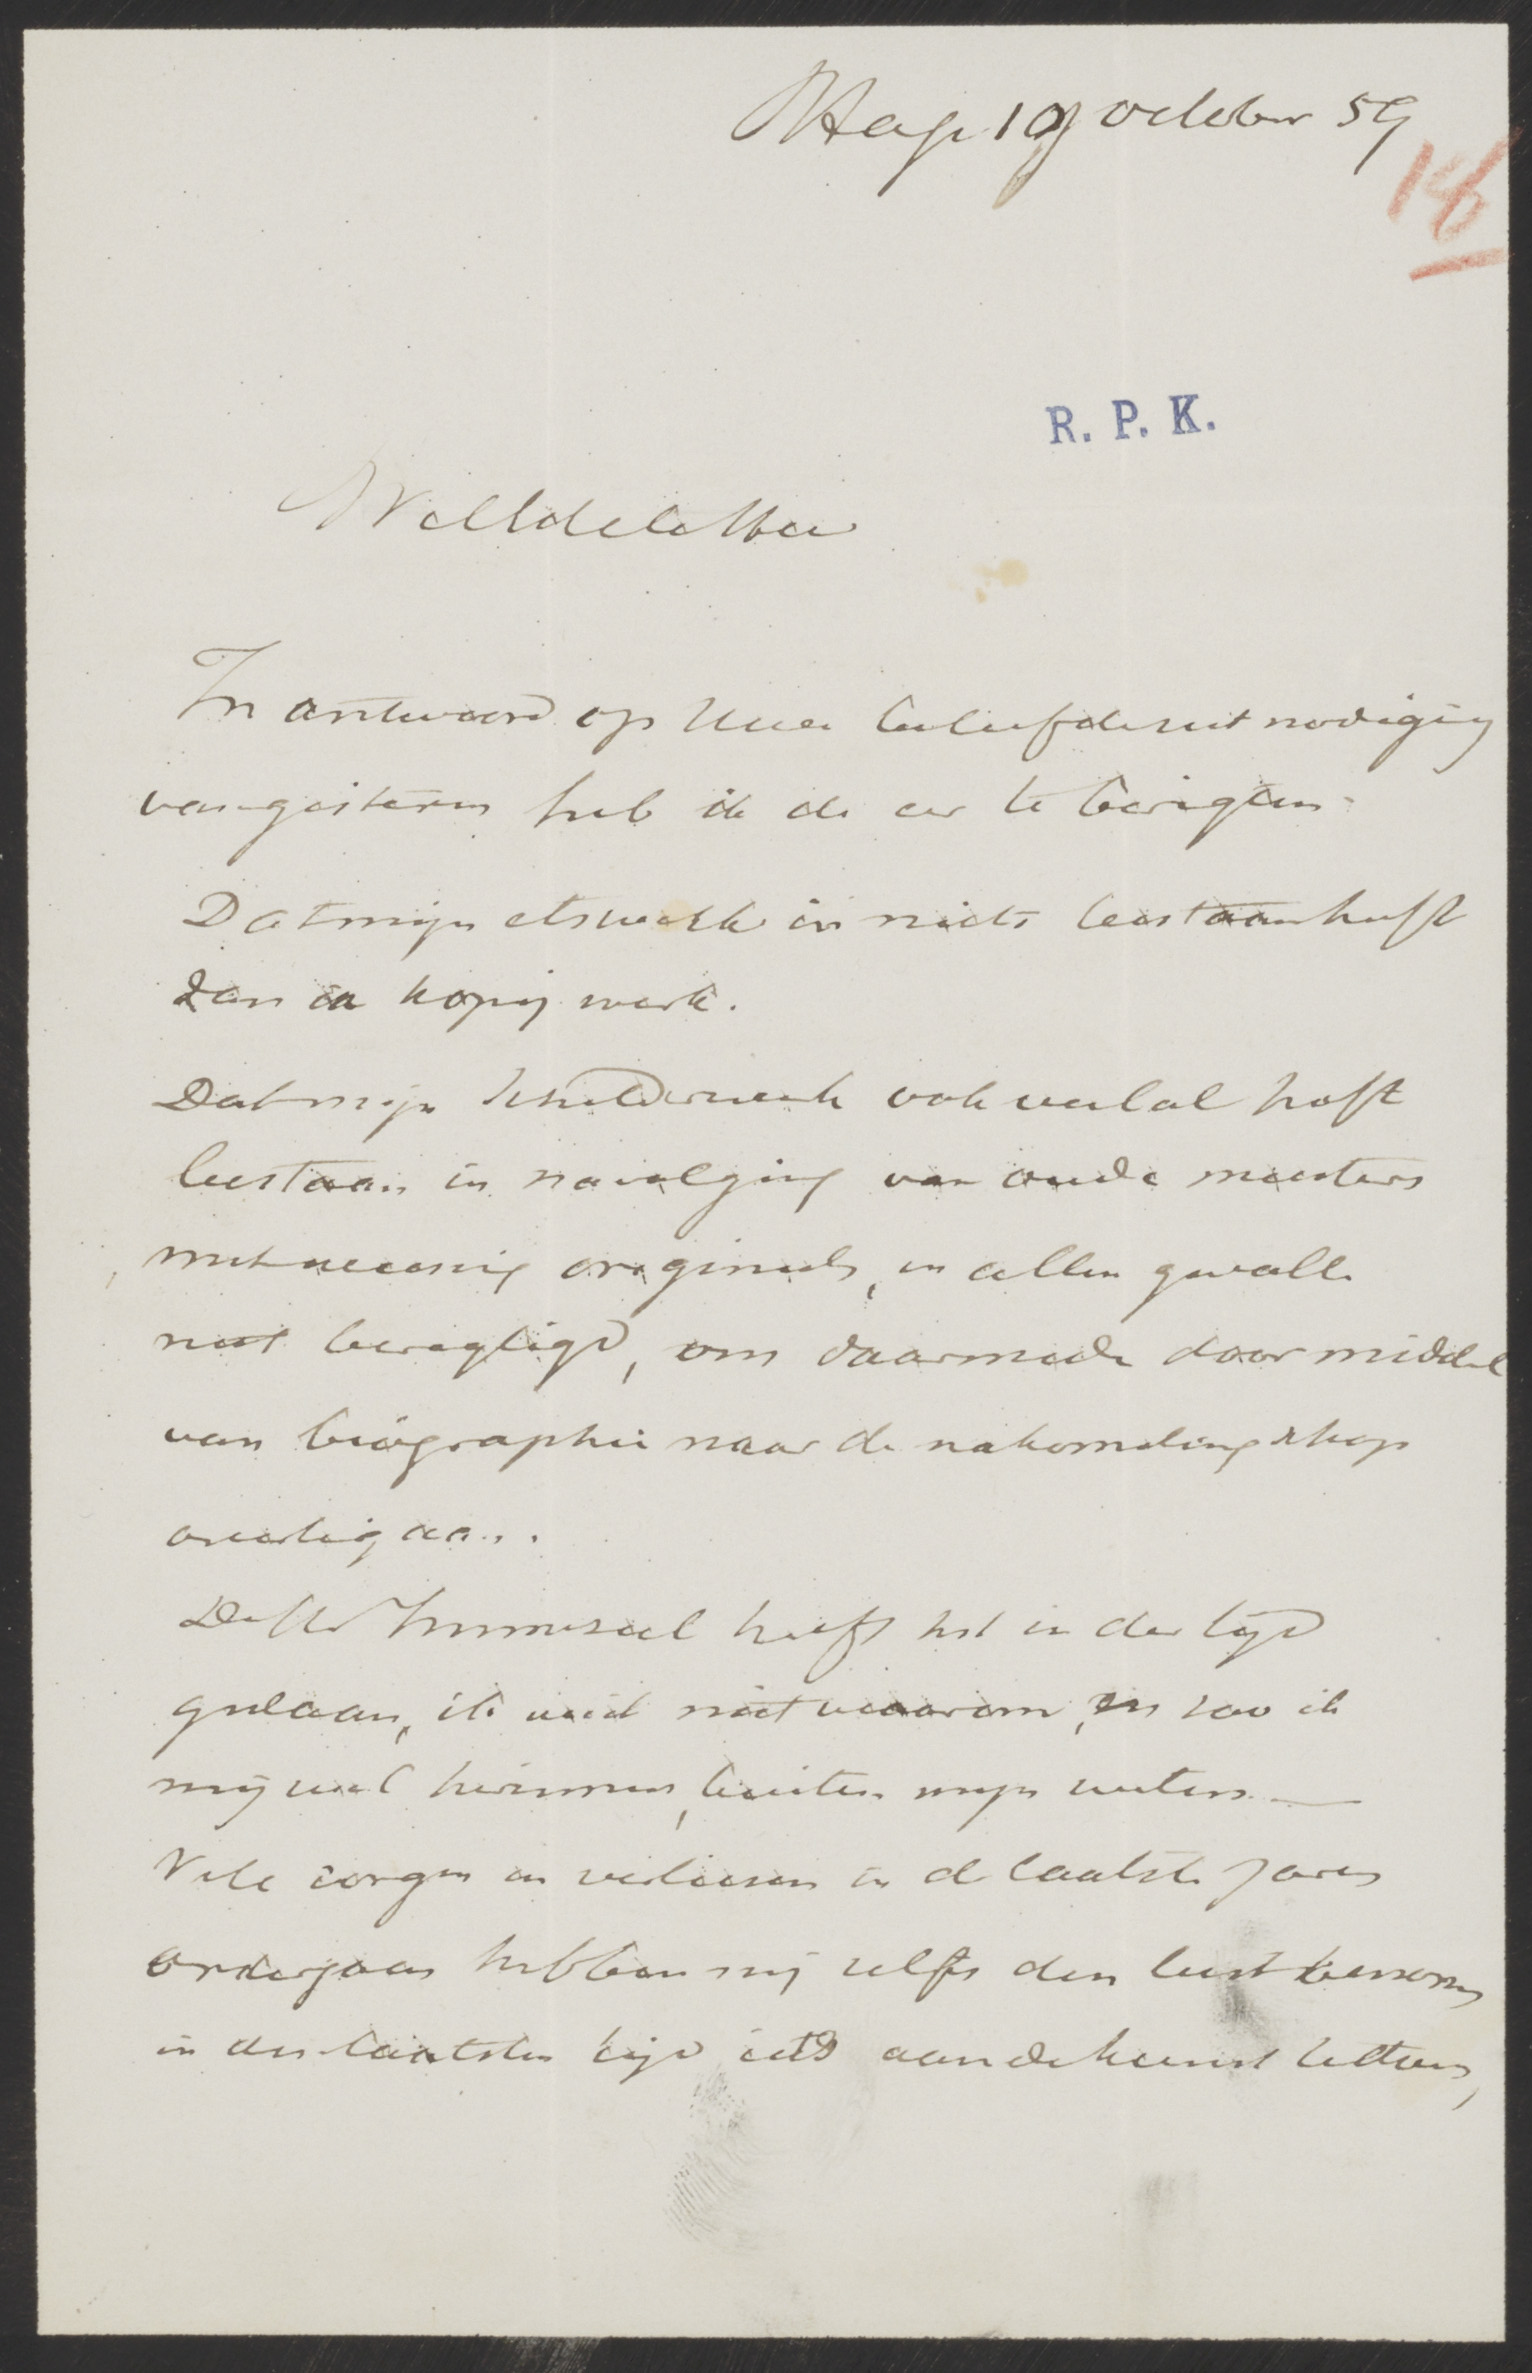 Hage 19 october 59
18
R. P. K.
WelEdele Heer
In antwoord op Uwe beleefde uitnodiging
van gisteren heb ik de eer te berigten.
Dat mijn etswerk in niets bestaan heeft
dan in kopij werk.
Dat mijn schilderwerk ook veelal heeft
bestaan in navolging van oude meesters
met weenig origineels, in allen gevalle
niet beregtigd, om daarmede door middel
van biögraphie naar de nakomelingschap
overtegaan.
De Hr Immerzeel heeft het in der tijd
gedaan, ik weet niet waarom, en zoo ik
mij wel herinner, buiten mijn weten. —
Vele zorgen en verliesen in de laatste jaren
ondergaan hebben mij zelfs den lust benomen
in den laatsten tijd iets aan de kunst te doen,